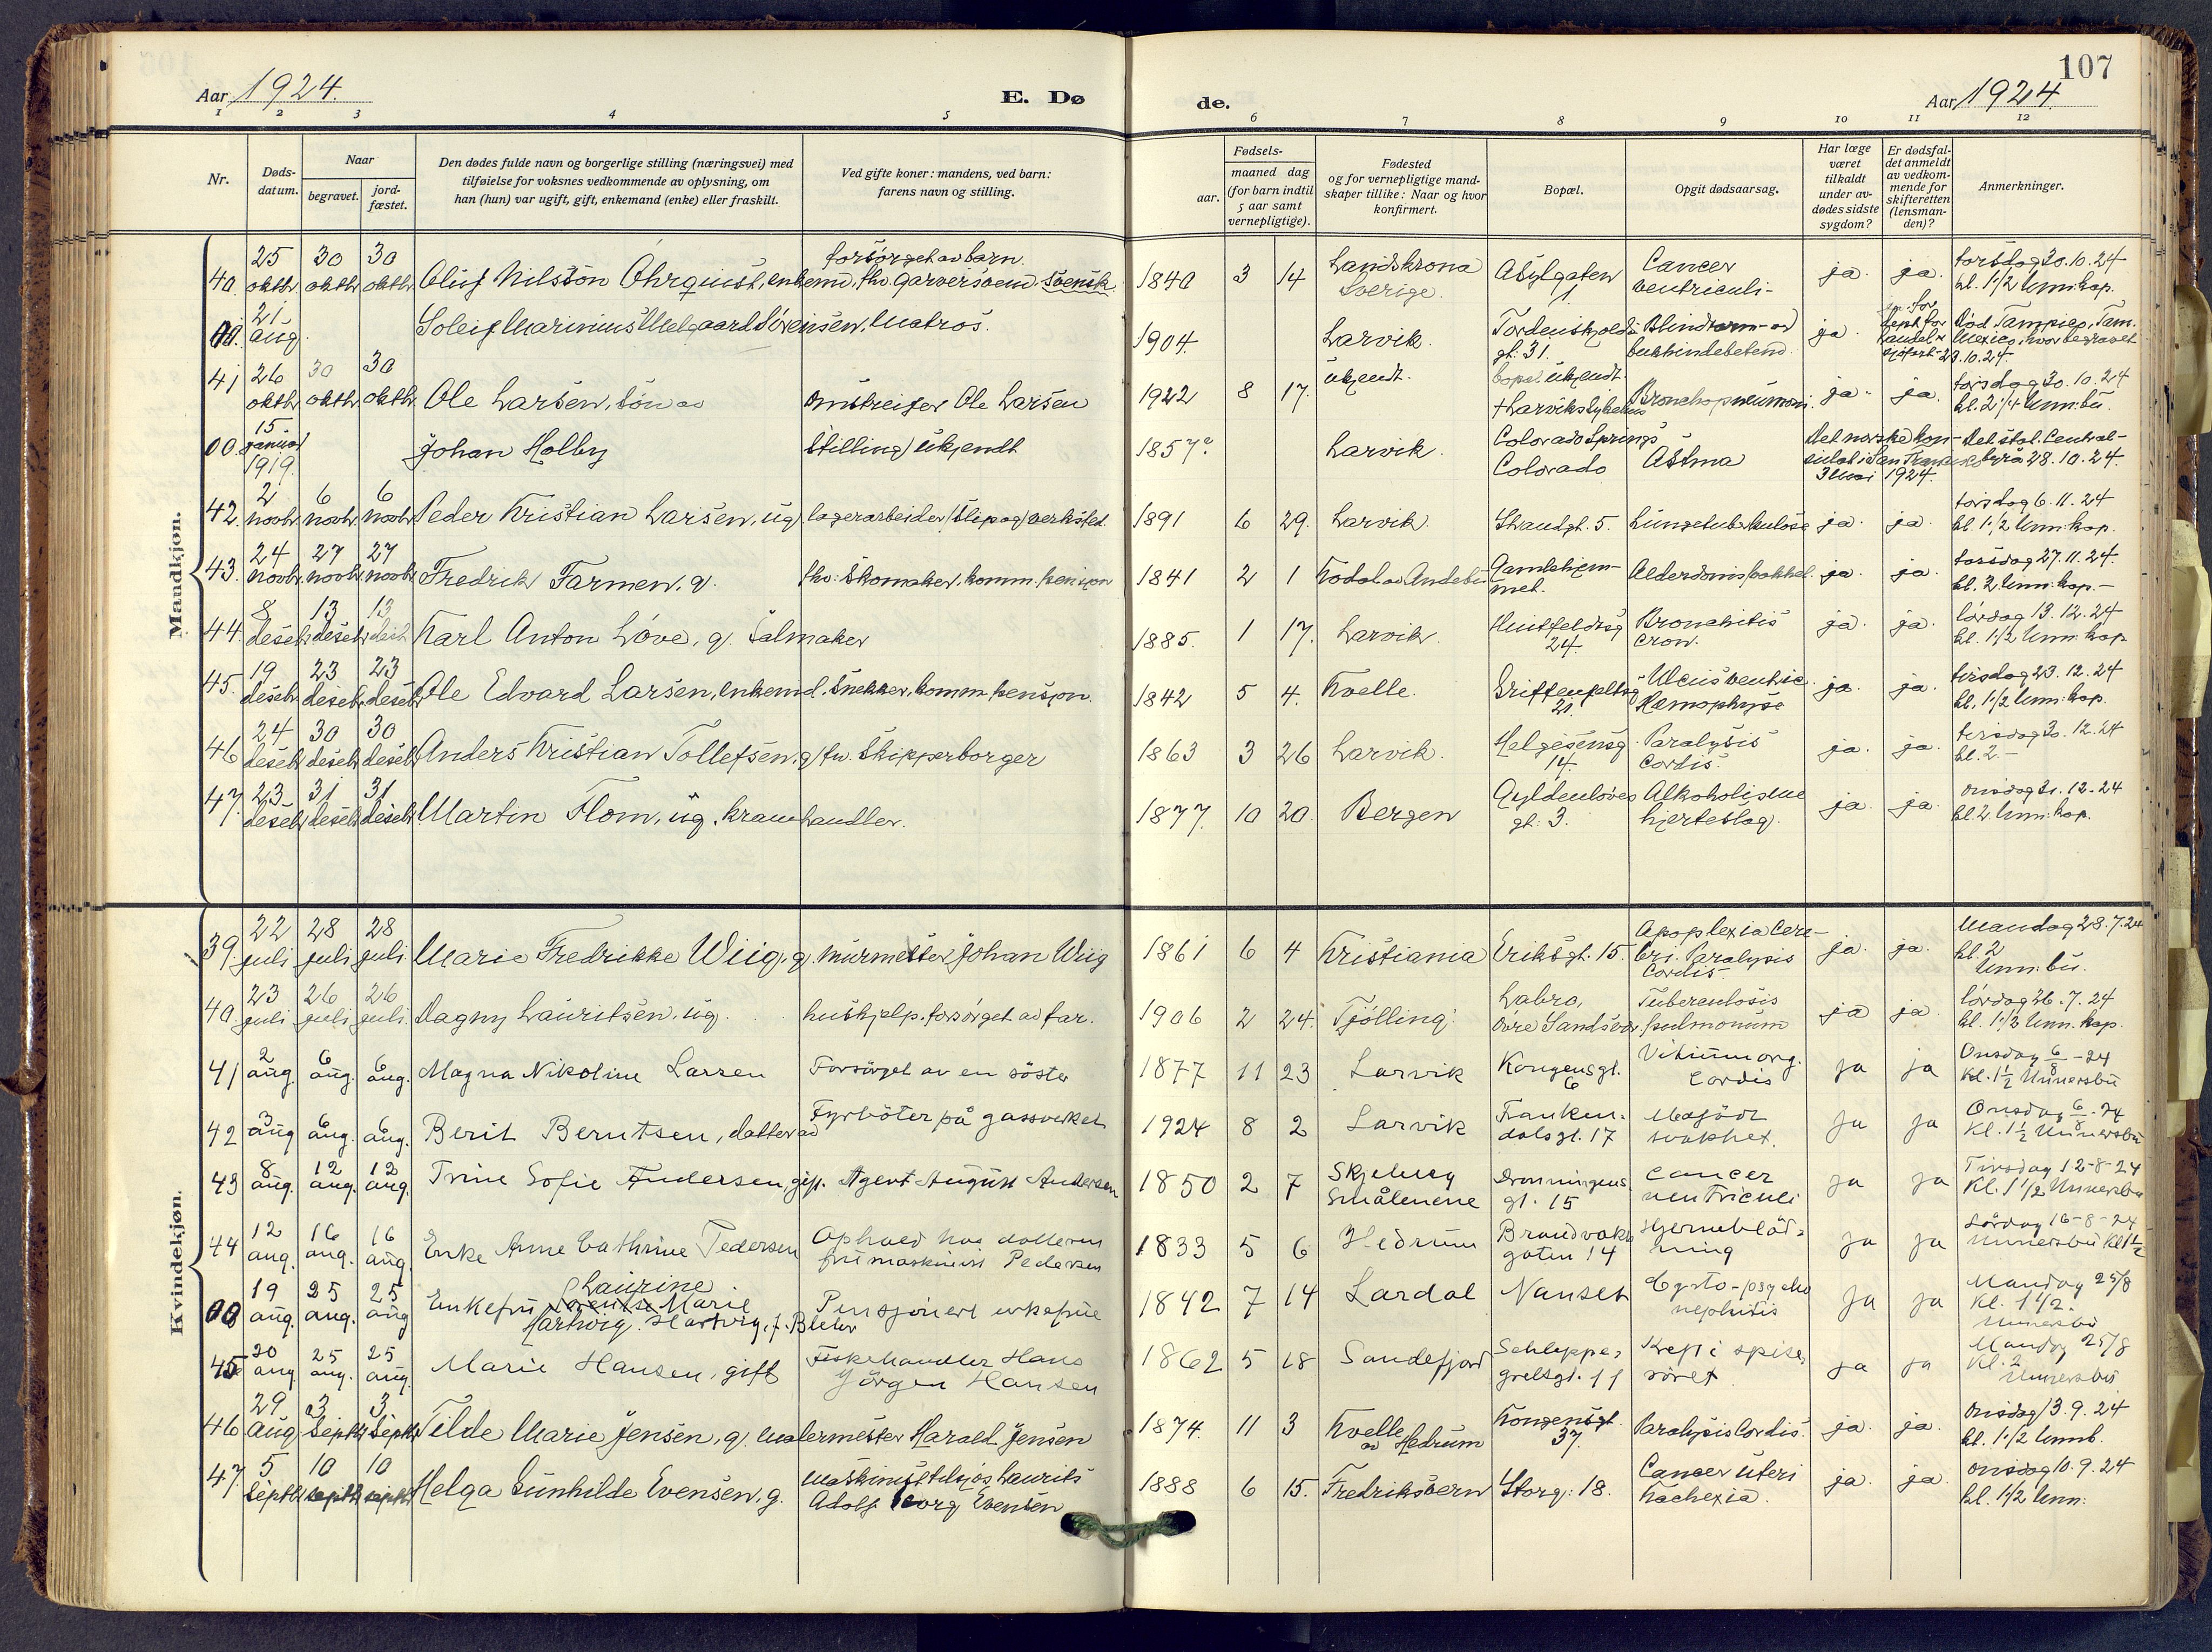 107
Aar 1924.
E. Dø
de.
Aar 1924.
1 2 3 4 5 6 7 8 9 10 11 12
Nr.
Døds-
datum.
Naar
begravet.
jord-
fæstet.
Den dødes fulde navn og borgerlige stilling (næringsvei) med
tilføielse for voksnes vedkommende av oplysning, om
han (hun) var ugift, gift, enkemand (enke) eller fraskilt.
Ved gifte koner: mandens, ved barn:
farens navn og stilling.
Fødsels-
aar.
maaned dag
(for barn indtil
5 aar samt
vernepligtige).
Fødested
og for vernepligtige mand-
skaper tillike: Naar og hvor
konfirmert.
Bopæl.
Opgit dødsaarsag.
Har læge
været
tilkaldt
under av-
dødes sidste
sygdom?
Er dødsfal-
det anmeldt
av vedkom-
mende for
skifteretten
(lensman-
den)?
Anmerkninger.
Mandkjøn.
40. 25 oktbr. 30 oktbr. 30 oktbr. Oluf Nilsson Öhrquist, enkem. fhv. garversvend. svensk. forsørget av barn. 1840 3 14 Landskrona Sverige. Asylgaten 1. Cancer ventriculi- ja. ja. torsdag 30.10.24 kl. 1 1/2 Unn: kap.
00. 21 aug. Soleif Marinius Melgaard Sørensen, Matros. 1904. Larvik. Tordenskjolds gt. 31. Blindtarm- og bukhindebetend. ja. Død Tampico, Tam. Mexico, hvor begravet 23.10.24.
41 26 oktbr. 30 oktbr. 30 oktbr. Ole Larsen, søn av omstreifer Ole Larsen 1922 8 17. ukjendt. bopæl ukjendt. + Larviks sykehus Bronchopneumoni. ja. ja. torsdag 30.10.24 kl. 2 1/4 Unn: bu.
00. 15 januar 1919. Johan Holby Stilling ukjendt 1857? Larvik. Colorado Springs Colorado Astma Det norske konsulat i San Fransisko 3 mai 1924. Det stat. Centralbyrå 28.10.24.
42. 2 novbr. 6 novbr. 6 novbr. Peder Kristian Larsen, ug. lagerarbeider (Slip og) verksted. 1891 6 29. Larvik. Strandgt. 5. Lungetuberkulose ja. ja. torsdag 6.11.24 kl. 1 1/2 Unn: kap.
43. 24 novbr. 27 novbr. 27 novbr. Fredrik Farmen, g. fhv: Skomaker, komm. pensjon 1841 2 1 Kodal av Andebu Gamlehjemmet. Alderdomssvakhet. ja. ja. torsdag 27.11.24. kl. 2. Unn: kap.-
44. 8 desebr. 13 desebr. 13 desbr. Karl Anton Løve, g. Salmaker 1885. 1 17. Larvik. Huitfeldtsg. 24. Bronchitis cron. ja. ja. lørdag 13.12.24 kl. 1 1/2 Unn: kap
45. 19 desebr. 23 desebr. 23 desebr. Ole Edvard Larsen, enkemd. Snekker, komm. pensjon. 1842 5 4. Kvelle. Griffenfeltsg. 21. Ulcus ventric. Hæmophyse ja. ja. tirsdag 23.12.24 kl. 1 1/2 Unn: kap.
46 24 desebr. 30 desebr. 30 desebr. Anders Kristian Tollefsen, g. fv. Skipperborger 1863 3 26 Larvik. Helgesensg. 14. Paralysis Cordis. ja. ja. tirsdag 30.12.24 kl. 2.-
47. 23 desebr. 31 desebr. 31 desebr. Martin Flom, ug. kramhandler. 1877. 10 20. Bergen Gyldenløves gt: 3. Alkoholisme hjerteslag. ja. ja. onsdag 31.12.24 kl. 2 Unn: kap.
Kvindekjøn.
39. 22 juli 28 juli 28 juli Marie Fredrikke Wiig, g. murmester Johan Wiig 1861 6 4 Kristiania Eriksgt. 15. Apoplexia Cerebri. Paralysis Cordis. ja. ja. Mandag 28.7.24 kl. 2 Unn: bu.
40. 23 juli 26 juli 26 juli Dagny Lauritsen, ug. hushjelp. forsørget av far. 1906 2 24. Tjølling Labro, øvre Sandsvær. Tuberculosis pulmonum ja ja. lørdag 26.7.24 kl. 1 1/2 Unn. kap.
41 2 aug. 6 aug. 6 aug. Magna Nikoline Larsen Forsörget av en söster 1877 11 23 Larvik Kongensgt. 6 Vitium org. Cordis ja ja Onsdag 6/8-24 Kl. 1 1/2 Unnersbu
42 3 aug 6 aug. 6 aug. Berit Berntsen, datter av Fyrböter på gassverket 1924 8 2 Larvik Frankendalsgt. 17 Medfödt svakhet. ja ja Onsdag 6/8-24 Kl. 1 1/2 Unnersbu
43 8 aug. 12 aug. 12 aug. Trine Sofie Andersen, gift. Agent August Andersen 1850 2 7 Skjeberg Smålenene Dronningens gt. 15 Cancer ventriculi ja ja Tirsdag 12-8-24 Kl. 1 1/2 Unnersbu
44 12 aug. 16 aug. 16 aug. Enke Anne Cathrine Pedersen Ophold hos datteren fru maskinist Pedersen 1833 5 6 Hedrum Brandvaktgaten 14 Hjerneblødning ja ja Lördag 16-8-24 Unnersbu Kl 1 1/2
00 19 aug. 25 aug. 25 aug Enkefru Laurine Marie Hartvig. Hartvig, f. Blehr Pensjonert enkefrue 1842 7 14 Lardal Nanset Cysto-pyelo nephritis ja ja Mandag 25/8 Kl. 1 1/2. Unnersbu
45 20 aug 25 aug. 25 aug. Marie Hansen, gift Fiskehandler Hans Jörgen Hansen 1862 5 18 Sandefjord Schleppegrelsgt. 11 Kreft i spiserøret ja ja Mandag 25/8 Kl. 2 Unnersbu
46 29 aug 3 Septb. 3 Septb. Tilde Marie Jensen, g. malermester Harald Jensen 1874. 11 3 Kvelle av Hedrum Kongensgt. 37. Paralysis Cordis. ja. ja. onsdag 3.9.24 kl. 1 1/2 Unnb.
47. 5 septb. 10 septb. 10 septb. Helga Gunhilde Evensen, g. maskinist tilsjøs Laurits Adolf Georg Evensen 1888 6 15. Fredriksvern Storg: 18. Cancer Uteri Kachexia. ja. ja. onsdag 10.9.24 kl. 1 1/2 Unn: